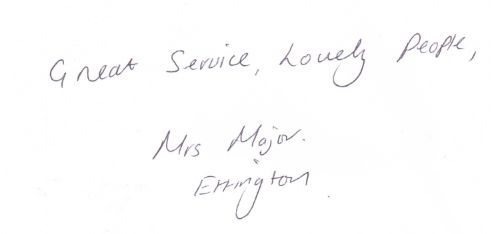 Great Service, Lovely People,
Mrs Major.
Errington